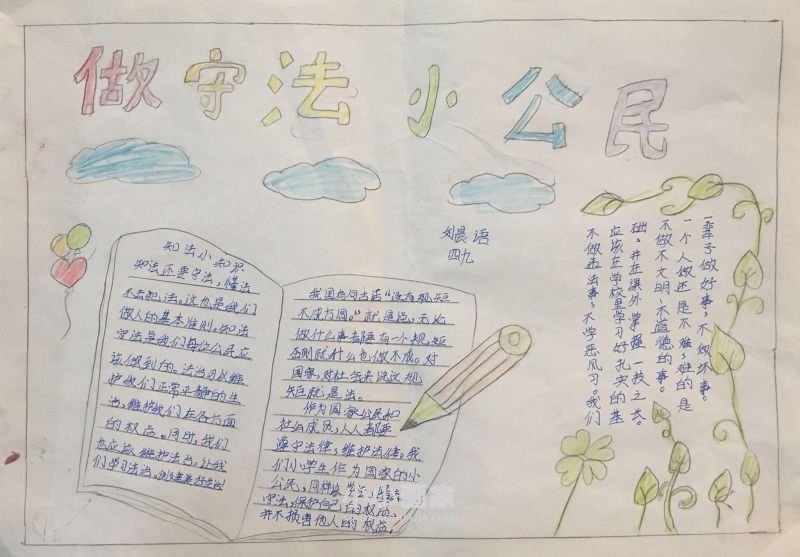 做守法小公民
刘晨语
四九
知法小知识
知法还要守法，懂法
不去犯法。这也是我们
做人的基本准则。知法
守法是我们每位公民应
该做到的。法治可以维
护我们正常平静的生
活，维护我们在各方面
的权益。同时，我们
也应该维护法治。让我
们学习法治。
我国自古
不成方圆。”就是说，无论
做什么事去都要有一个规矩
否则就什么也做不成。对
国家，对社会来说这规
矩就是法。
作为国家公民和
社会成员，人人都要
遵守法律，维护法律。我
们小学生作为国家的小
公民，同样
守法，保护自己的权益。
并不损害他人的权益。
一辈子做好事，不做坏事。
一个人做还是不难，难的是
不做不文明、不道德的事。
础。并在课外掌握一技之长。
应该在学校里学习好扎实的基
不做违法事，不学恶风习。我们